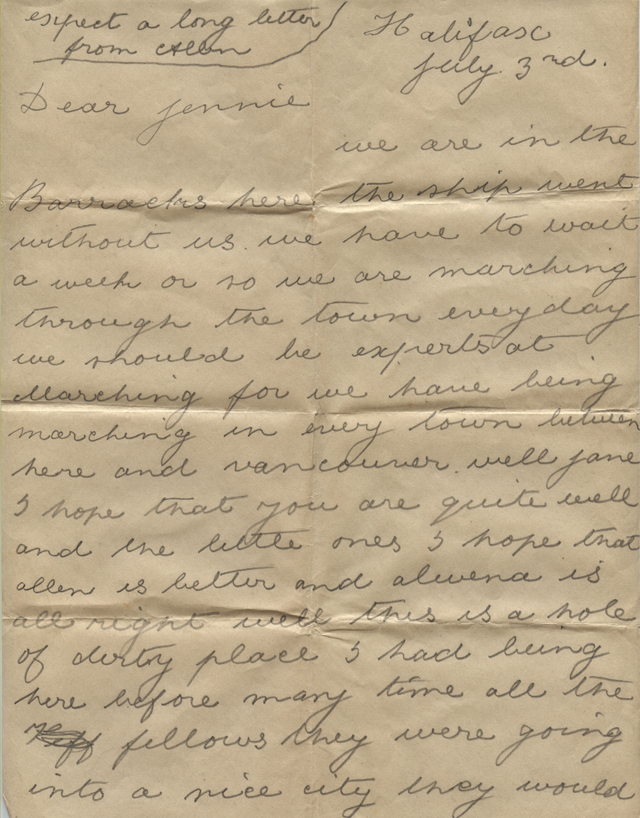 expect a long letter
from Allen
Halifax
July 3rd.
Dear Jennie
we are in the
Barracks here the ship went
without us. we have to wait
a week or so we are marching
through the town everyday
we should be experts at
Marching for we have being
marching in every town between
here and vancouver. well jane
I hope that you are quite well
and the little ones I hope that
allen is better and alwena is
all right well this is a hole
of dirty place I had being
here before many time all the
fellows they were going
into a nice city they would